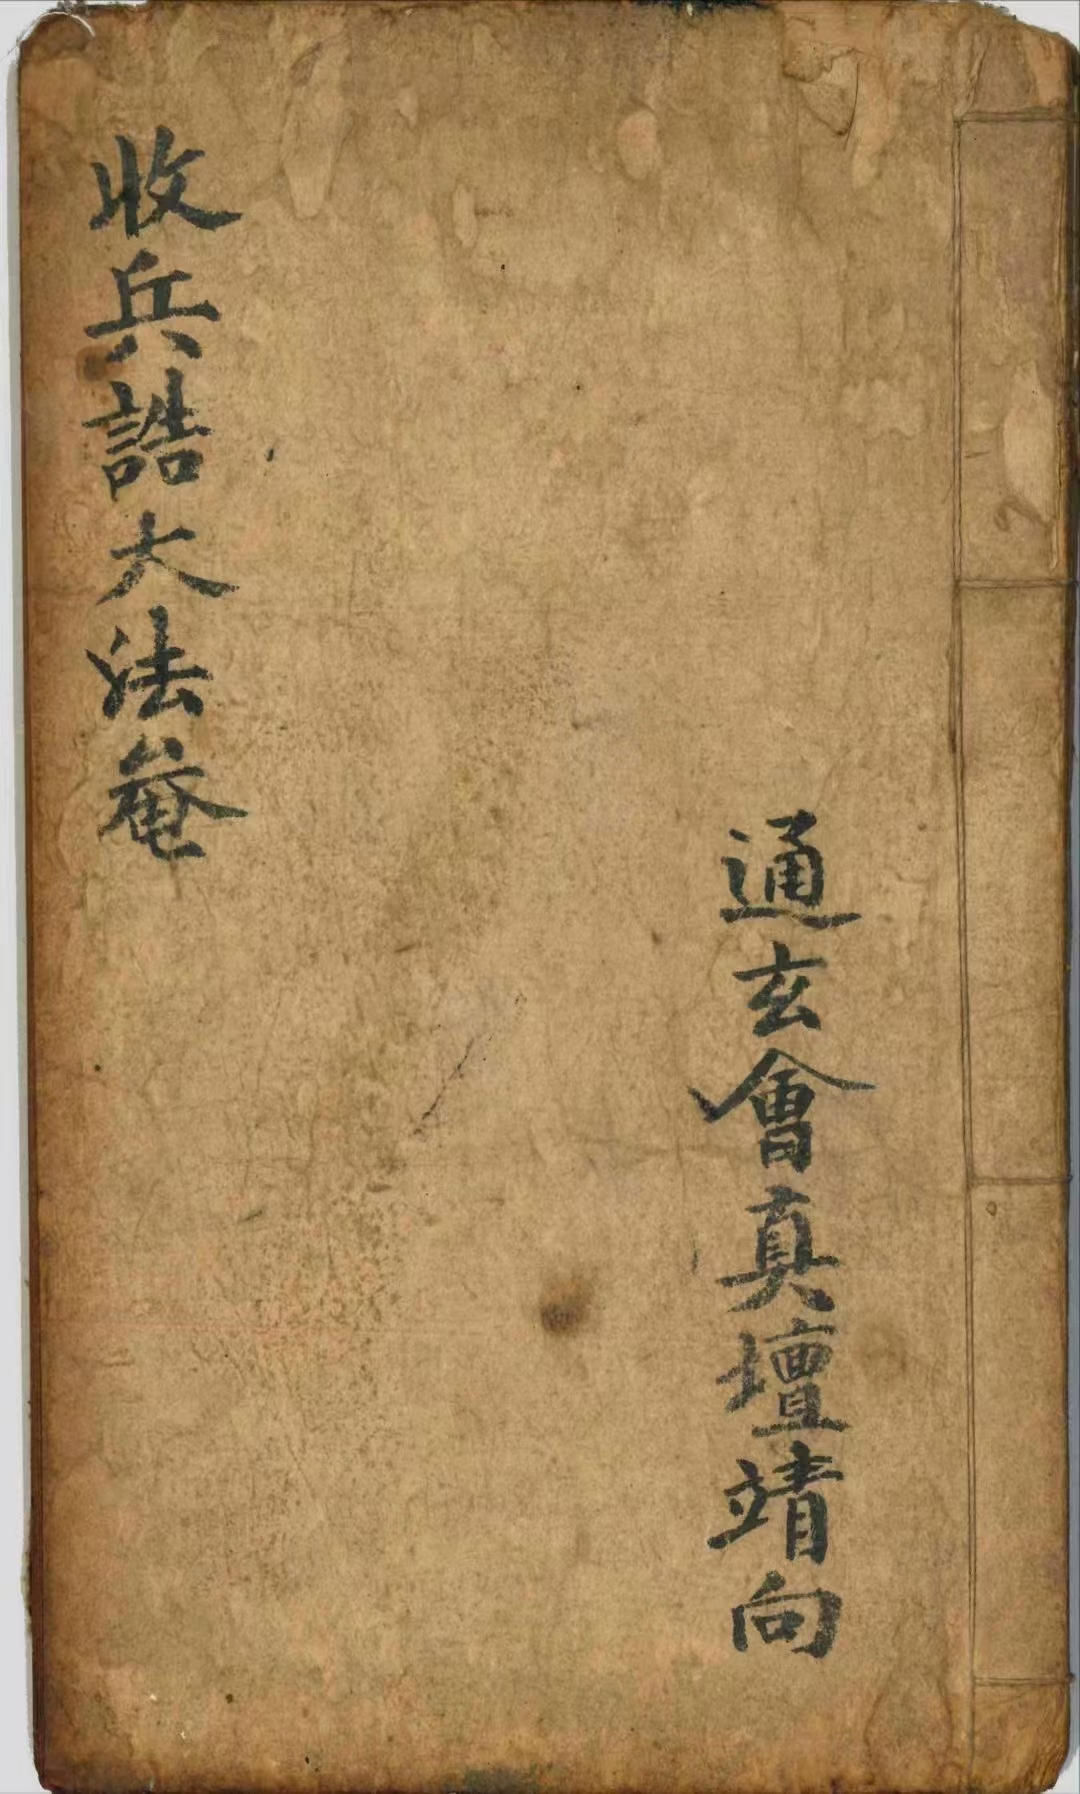 通玄會真壇靖向
收兵誥大法菴